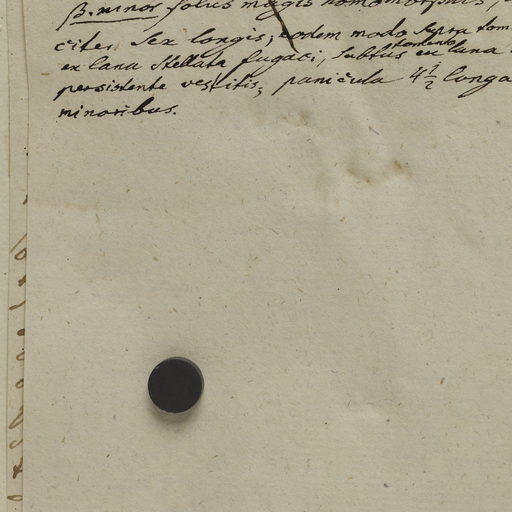 β. minor foliis magis homomorphis,
cite, sex longis, eodem modo supra tom
ex lana stellata fugaci, subtus tomento ex lana
persistente vestitis; panicula 4½ longa
minoribus.